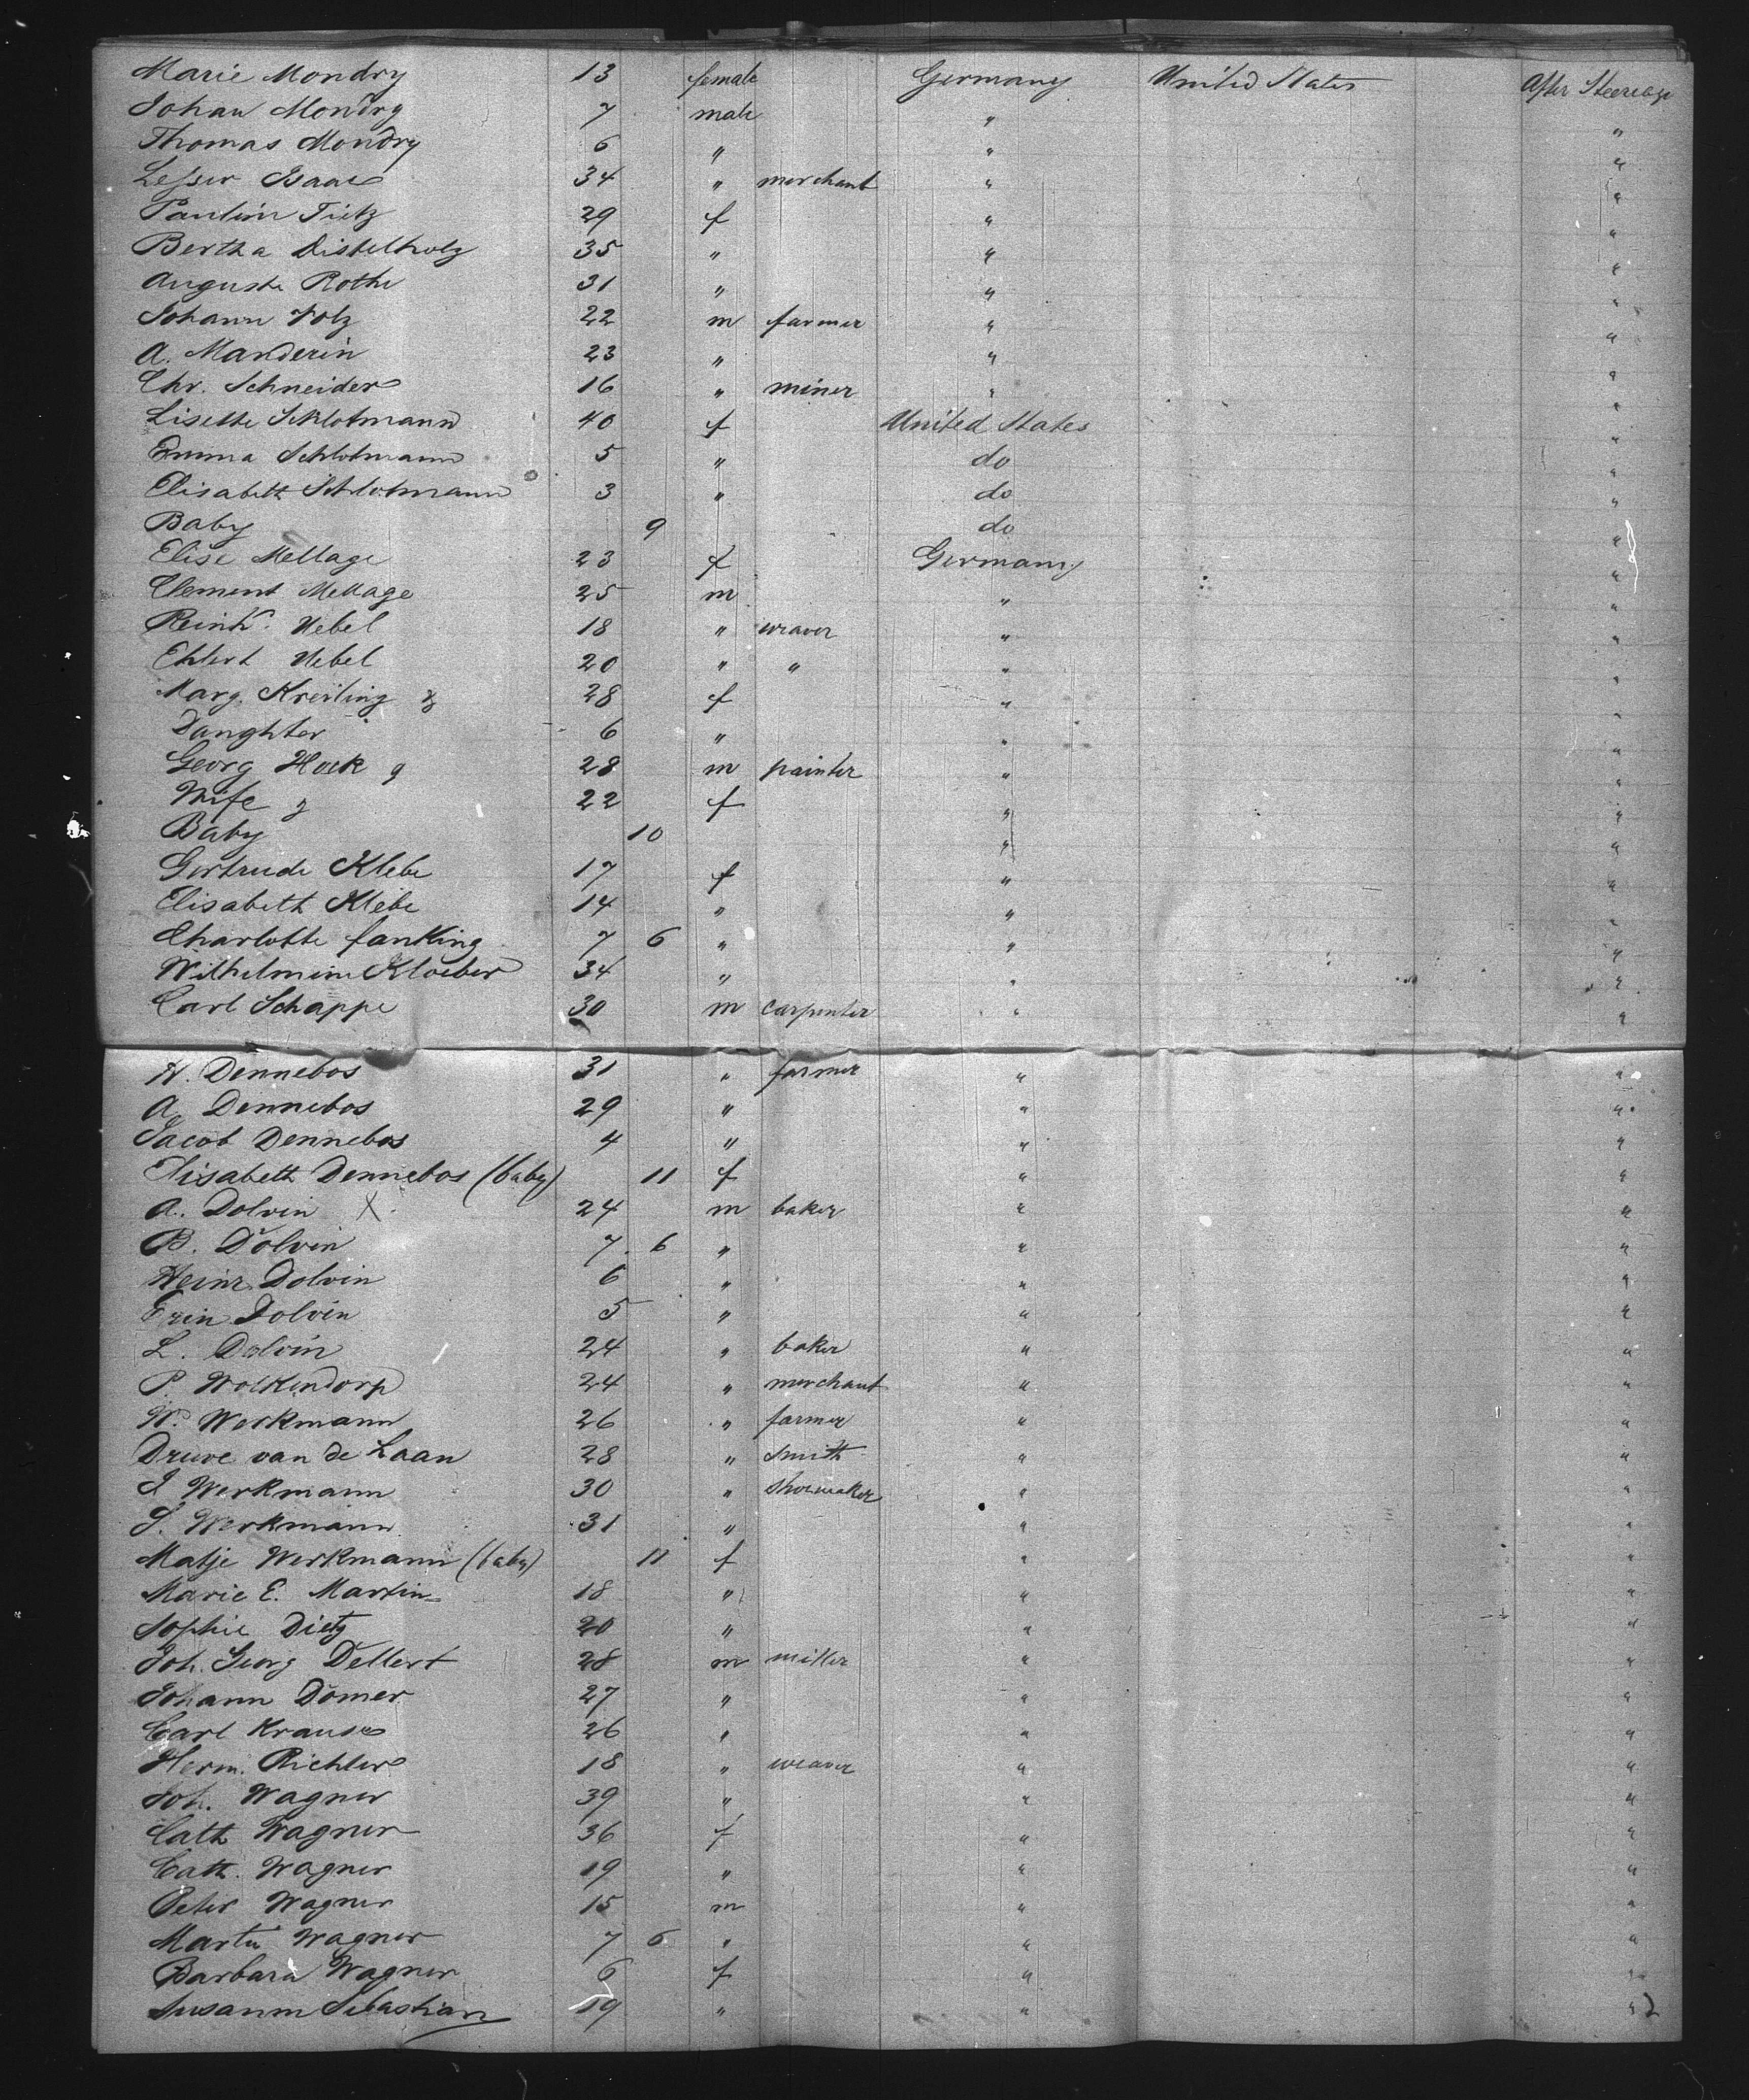 Marie Mondry 13 female Germany United States After Steerage
Johan Mondry 7 male " "
Thomas Mondry 6 " " "
Lesser Isaac 34 " merchant " "
Paulin Tietz 29 f " "
Bertha Distelholz 35 " " "
Auguste Rothe 31 " " "
Johann Volz 22 m farmer " "
A. Manderin 23 " " "
Chr. Schneider 16 " miner " "
Lisette Schlotmann 40 f United States "
Emma Schlotmann 5 " do "
Elisabeth Schlotmann 3 " do "
Baby 9 do "
Elise Mellage 23 f Germany "
Clement Mellage 25 m " "
Reinh. Uebel 18 " weaver " "
Ehlert Uebel 20 " " " "
Marg. Kreiling & 28 f " "
Daughter 6 " " "
Georg Hock & 28 m painter " "
Wife & 22 f " "
Baby 10 " "
Gertrude Klebe 17 f " "
Elisabeth Klebe 14 " " "
Charlotte Fanking 7 6 " " "
Wilhelmine Kloeber 34 " " "
Carl Schappe 30 m carpenter " "
H. Dennebos 31 " farmer " "
A. Dennebos 29 " " "
Jacob Dennebos 4 " " "
Elisabeth Dennebos (baby) 11 f " "
A. Dolvin X 24 m baker " "
B. Dolvin 7 6 " " "
Heinr. Dolvin 6 " " "
Dolvin 5 " " "
L. Dolvin 24 " baker " "
P. Wolkendorp 24 " merchant " "
W. Werkmann 26 " farmer " "
Druve van de Laan 28 " smith " "
J Werkmann 30 " shoemaker " "
S. Werkmann 31 " " "
Matje Werkmann (baby) 11 f " "
Marie E. Martin 18 " " "
Sophie Dietz 20 " " "
Joh. Georg Dellert 28 m miller " "
Johann Dömer 27 " " "
Carl Krause 26 " " "
Herm. Richter 18 " weaver " "
Joh. Wagner 39 " " "
Cath Wagner 36 f " "
Cath. Wagner 19 " " "
Peter Wagner 15 m " "
Martin Wagner 7 6 " " "
Barbara Wagner 6 f " "
Susanne Sebastian 19 " " " 2